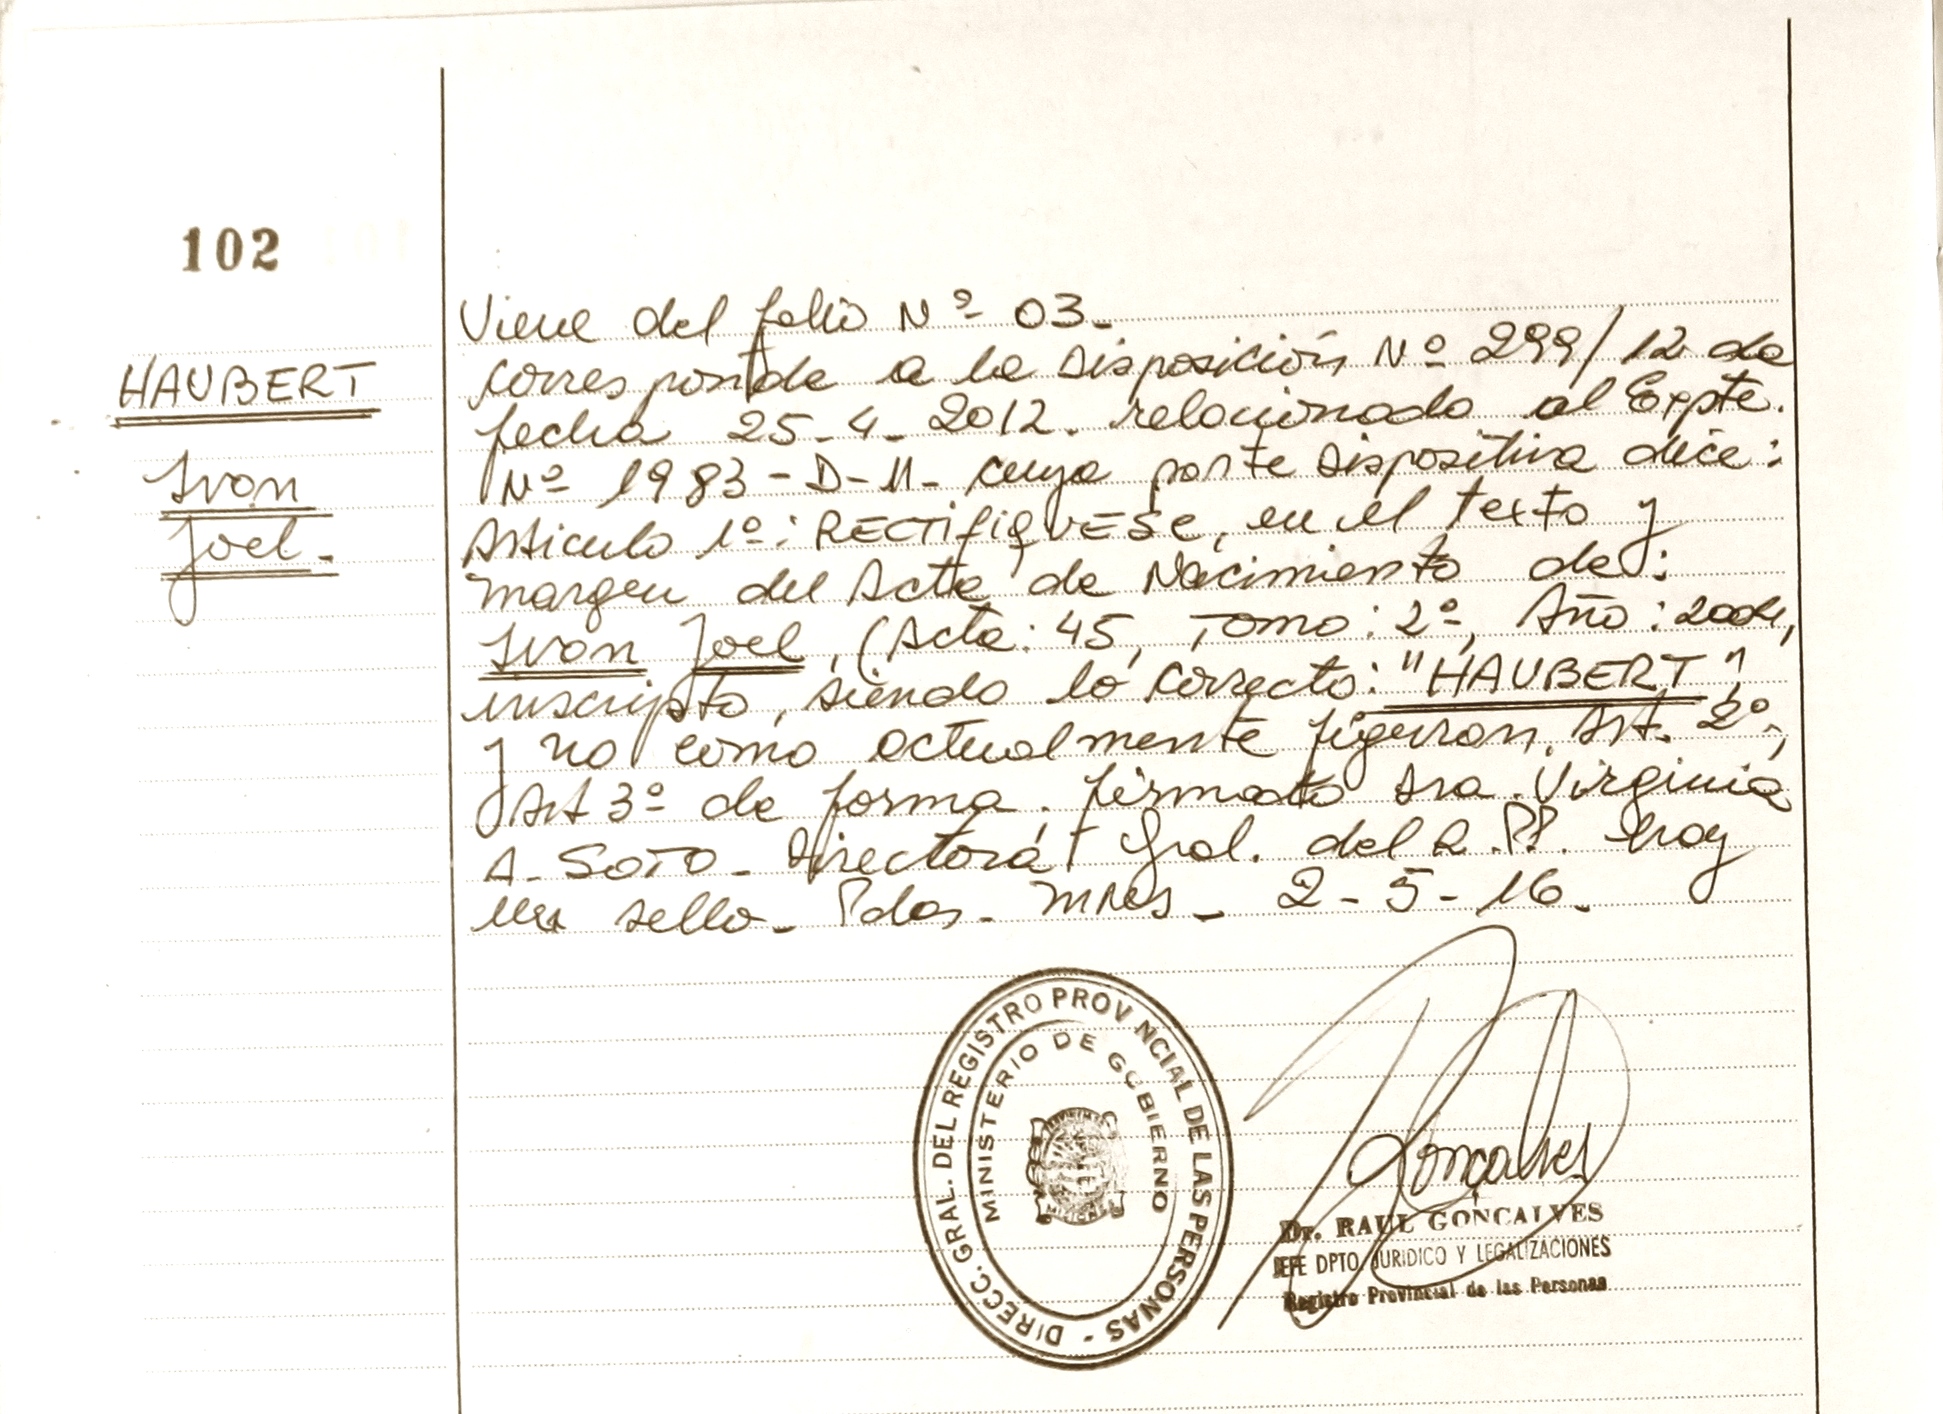 102
HAUBERT
Ivan
Joel.
Viene del folio Nº 03.
corresponde a la Disposición Nº 299/12 de
fecha 25-4-2012. relacionado al Expte.
Nº 1983-D-11- cuya parte dispositiva dice:
Articulo 1º: RECTIFIQUESE, en el texto y
margen del Acta de Nacimiento de:
Ivan Joel, (Acta: 45, Tomo: 2º, Año: 2004,
inscripto, siendo lo correcto: "HAUBERT",
y no como actualmente figuran. Art. 2º,
Art 3º de forma. firmado Sra. Virginia
A. SOTO - Directora Gral. del R.PP. hay
un sello - Pdas. Mnes - 2-5-16.
DIRECC. GRAL. DEL REGISTRO PROVINCIAL DE LAS PERSONAS -
MINISTERIO DE GOBIERNO
MISIONES
Gonçalves
Dr. RAUL GONCALVES
JEFE DPTO. JURIDICO Y LEGALIZACIONES
Registro Provincial de las Personas